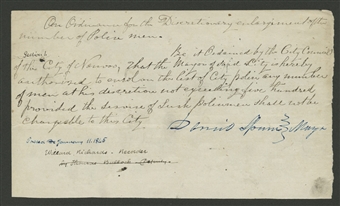 An Ordinance for the Discretionary enlargement of the
number of Police men.
Section 1. Be it Ordained by the City Council
of the City of Nauvoo, That the Mayor of said City is hereby
authorized to enrol on the list of City police any number
of men at his discretion not exceeding five hundred,
provided the service of such policemen shall not be
chargeable to this City.
Daniel Spencer Mayor
January 11. 1845
Willard Richards. Recorder